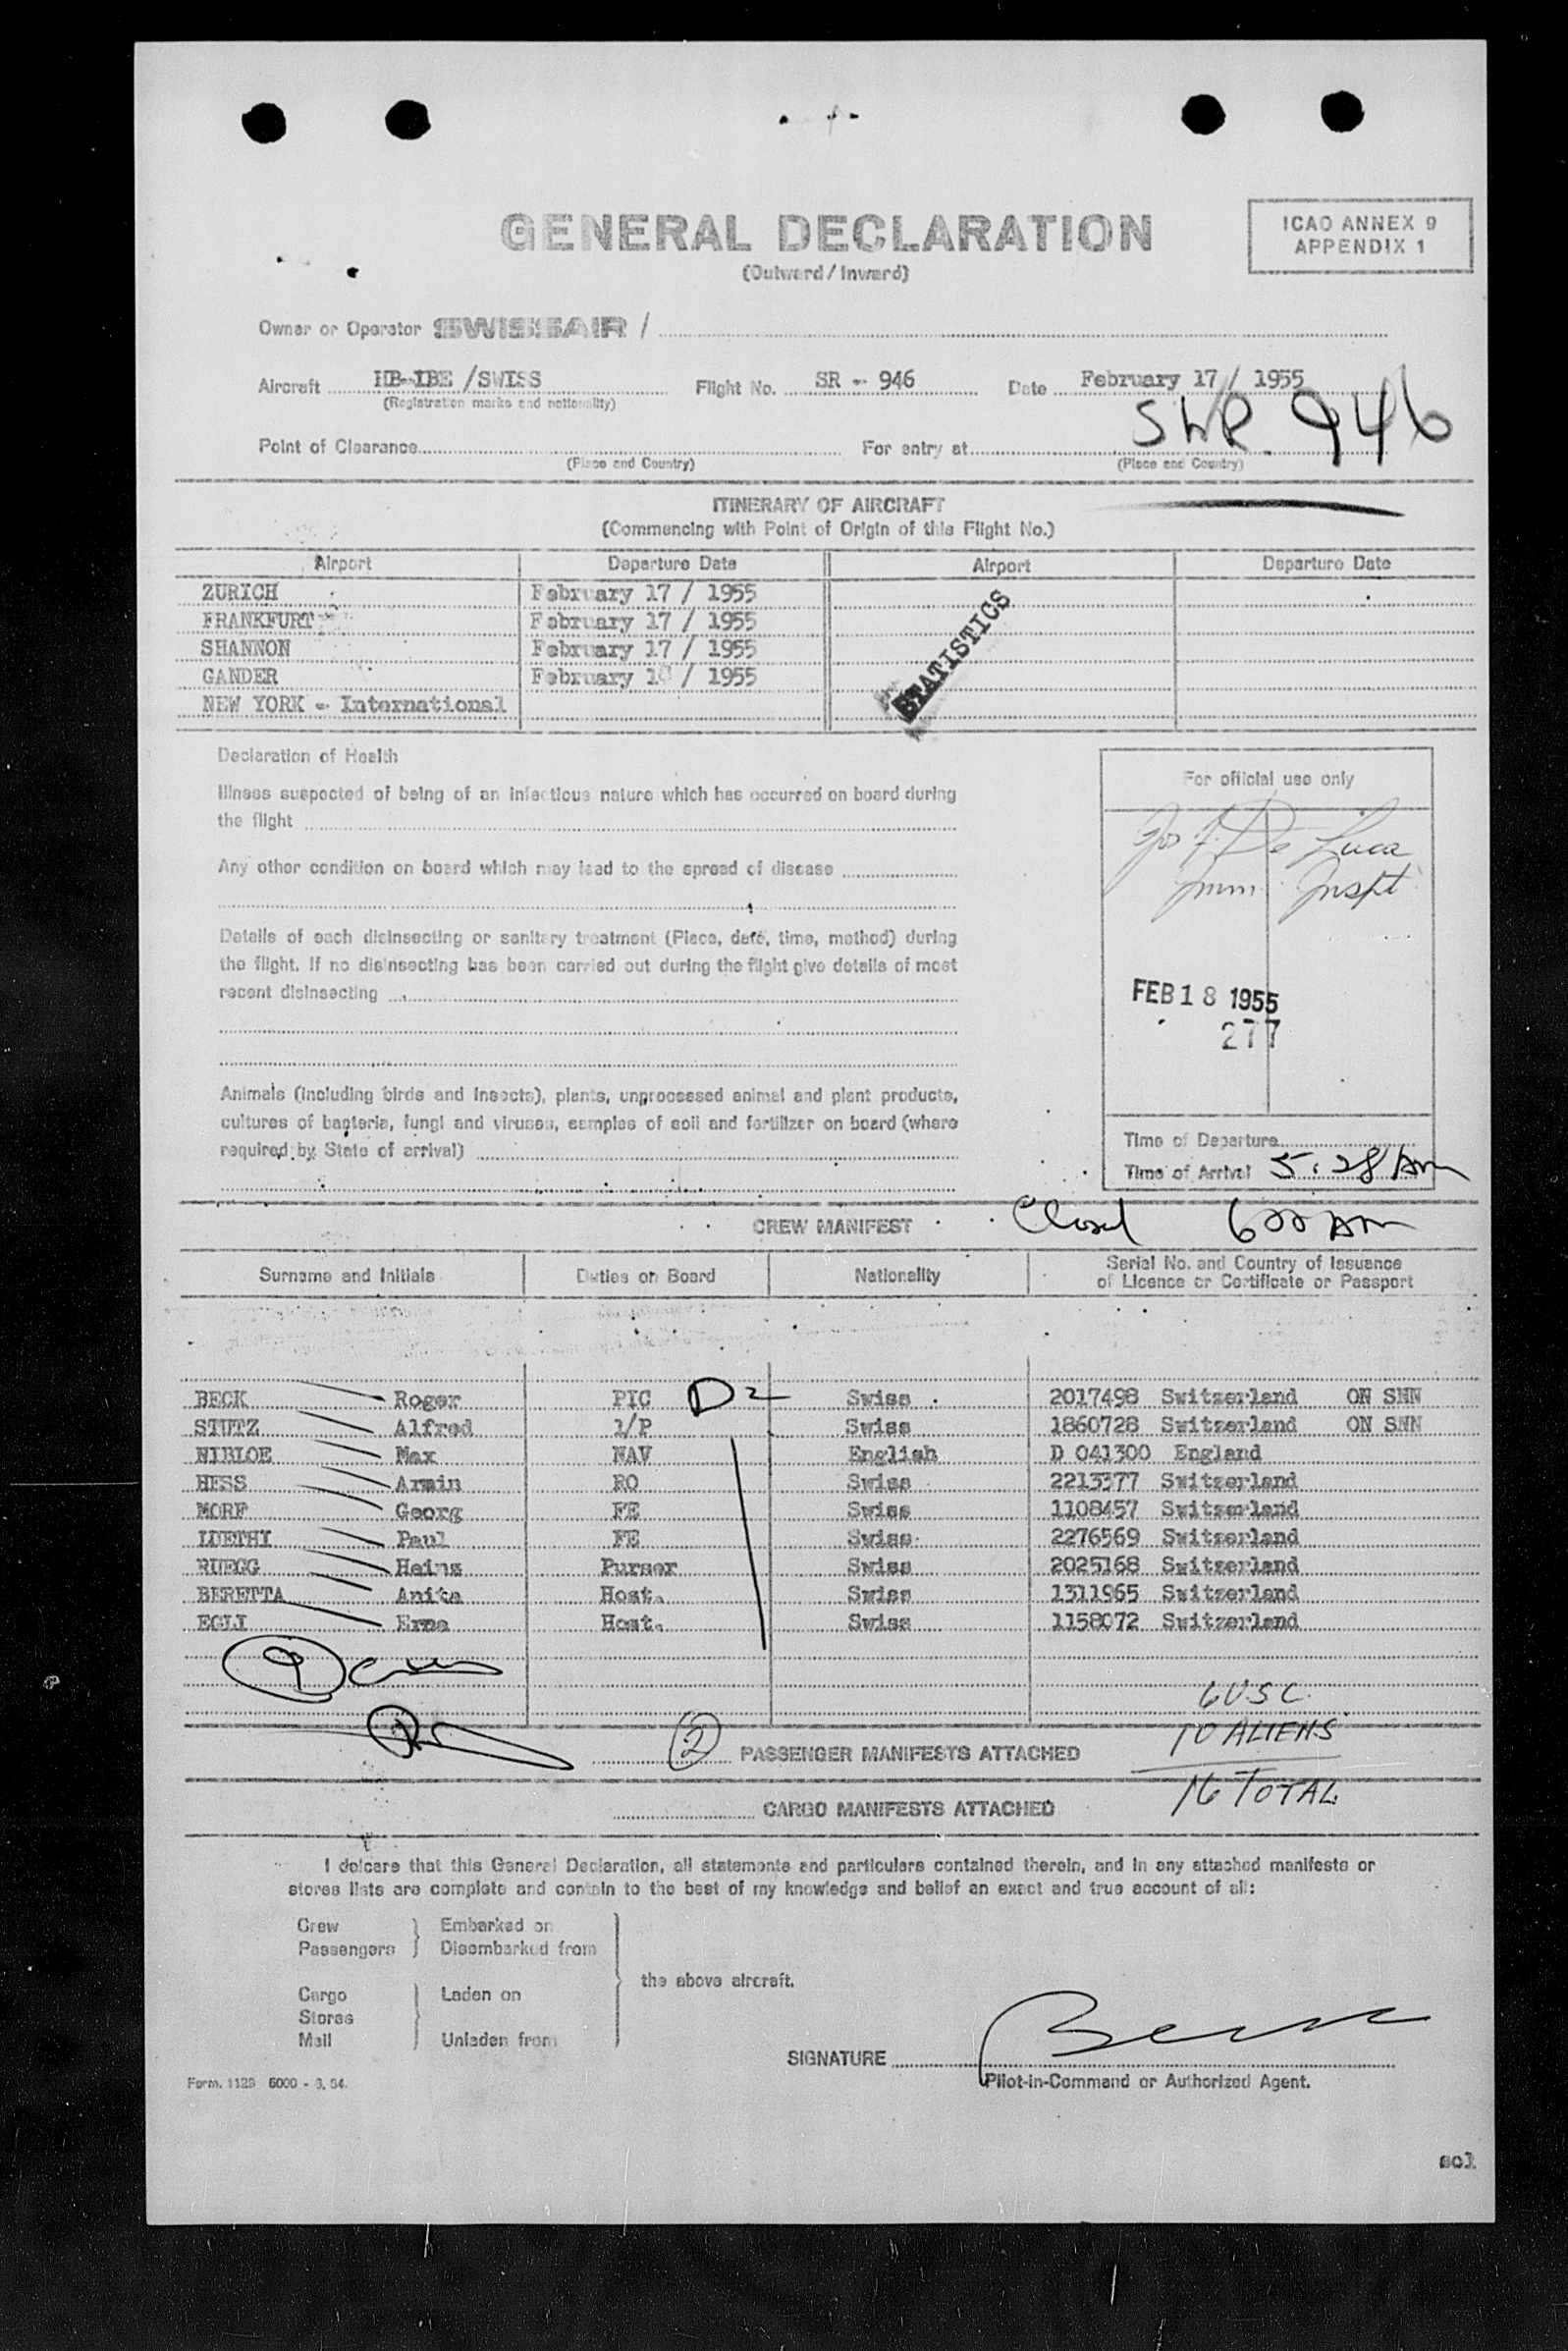 GENERAL DECLARATION
(Outward / Inward)
ICAO ANNEX 9
APPENDIX 1
Owner or Operator SWISSAIR /
Aircraft HB-IBE /SWISS Flight No. SR - 946 Date February 17 / 1955
(Registration marks and nationality)
SWR 946
Point of Clearance For entry at
(Place and Country) (Place and Country)
ITINERARY OF AIRCRAFT
(Commencing with Point of Origin of this Flight No.)
Airport Departure Date Airport Departure Date
ZURICH February 17 / 1955
FRANKFURT February 17 / 1955
SHANNON February 17 / 1955
GANDER February 18 / 1955
NEW YORK - International
STATISTICS
Declaration of Health
Illness suspected of being of an infectious nature which has occurred on board during
the flight
Any other condition on board which may lead to the spread of disease
Details of each disinsecting or sanitary treatment (Place, date, time, method) during
the flight. If no disinsecting has been carried out during the flight give details of most
recent disinsecting
Animals (including birds and insects), plants, unprocessed animal and plant products,
cultures of bacteria, fungi and viruses, samples of soil and fertilizer on board (where
required by State of arrival)
For official use only
Jos F. De Luca
Imm. Inspt
FEB 18 1955
277
Time of Departure
Time of Arrival 5:28 Am
Closed 600 Am
CREW MANIFEST
Surname and Initials Duties on Board Nationality Serial No. and Country of Issuance
of Licence or Certificate or Passport
BECK Roger PIC D2 Swiss 2017498 Switzerland ON SNN
STUTZ Alfred 1/P Swiss 1860728 Switzerland ON SNN
NIBLOE Max NAV English D 041300 England
HESS Armin RO Swiss 2213377 Switzerland
MORF Georg FE Swiss 1108457 Switzerland
LUETHI Paul FE Swiss 2276569 Switzerland
RUEGG Heinz Purser Swiss 2025168 Switzerland
BERETTA Anita Host. Swiss 1311965 Switzerland
EGLI Erna Host. Swiss 1158072 Switzerland
6 USC
10 ALIENS
16 TOTAL
(2) PASSENGER MANIFESTS ATTACHED
CARGO MANIFESTS ATTACHED
I delcare that this General Declaration, all statements and particulars contained therein, and in any attached manifests or
stores lists are complete and contain to the best of my knowledge and belief an exact and true account of all:
Crew Embarked on
Passengers Disembarked from
the above aircraft.
Cargo Laden on
Stores
Mail Unladen from
SIGNATURE
Pilot-in-Command or Authorized Agent.
Form. 1128 5000 - 3. 54.
scl